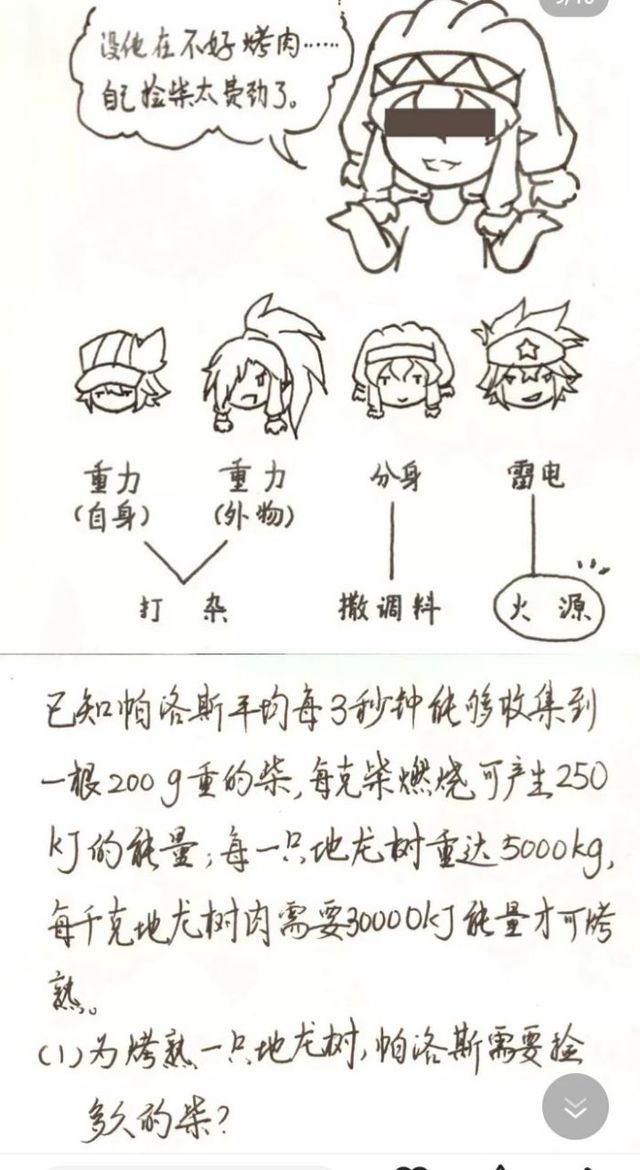 没他在不好烤肉……
自己捡柴太费劲了。
重力 重力 分身 雷电
(自身) (外物)
打杂 撒调料 火源
已知帕洛斯平均每3秒钟能够收集到
一根200g重的柴,每克柴燃烧可产生250
kJ的能量;每一只地龙树重达5000kg,
每千克地龙树肉需要30000kJ能量才可烤
熟。
(1)为烤熟一只地龙树,帕洛斯需要捡
多久的柴?